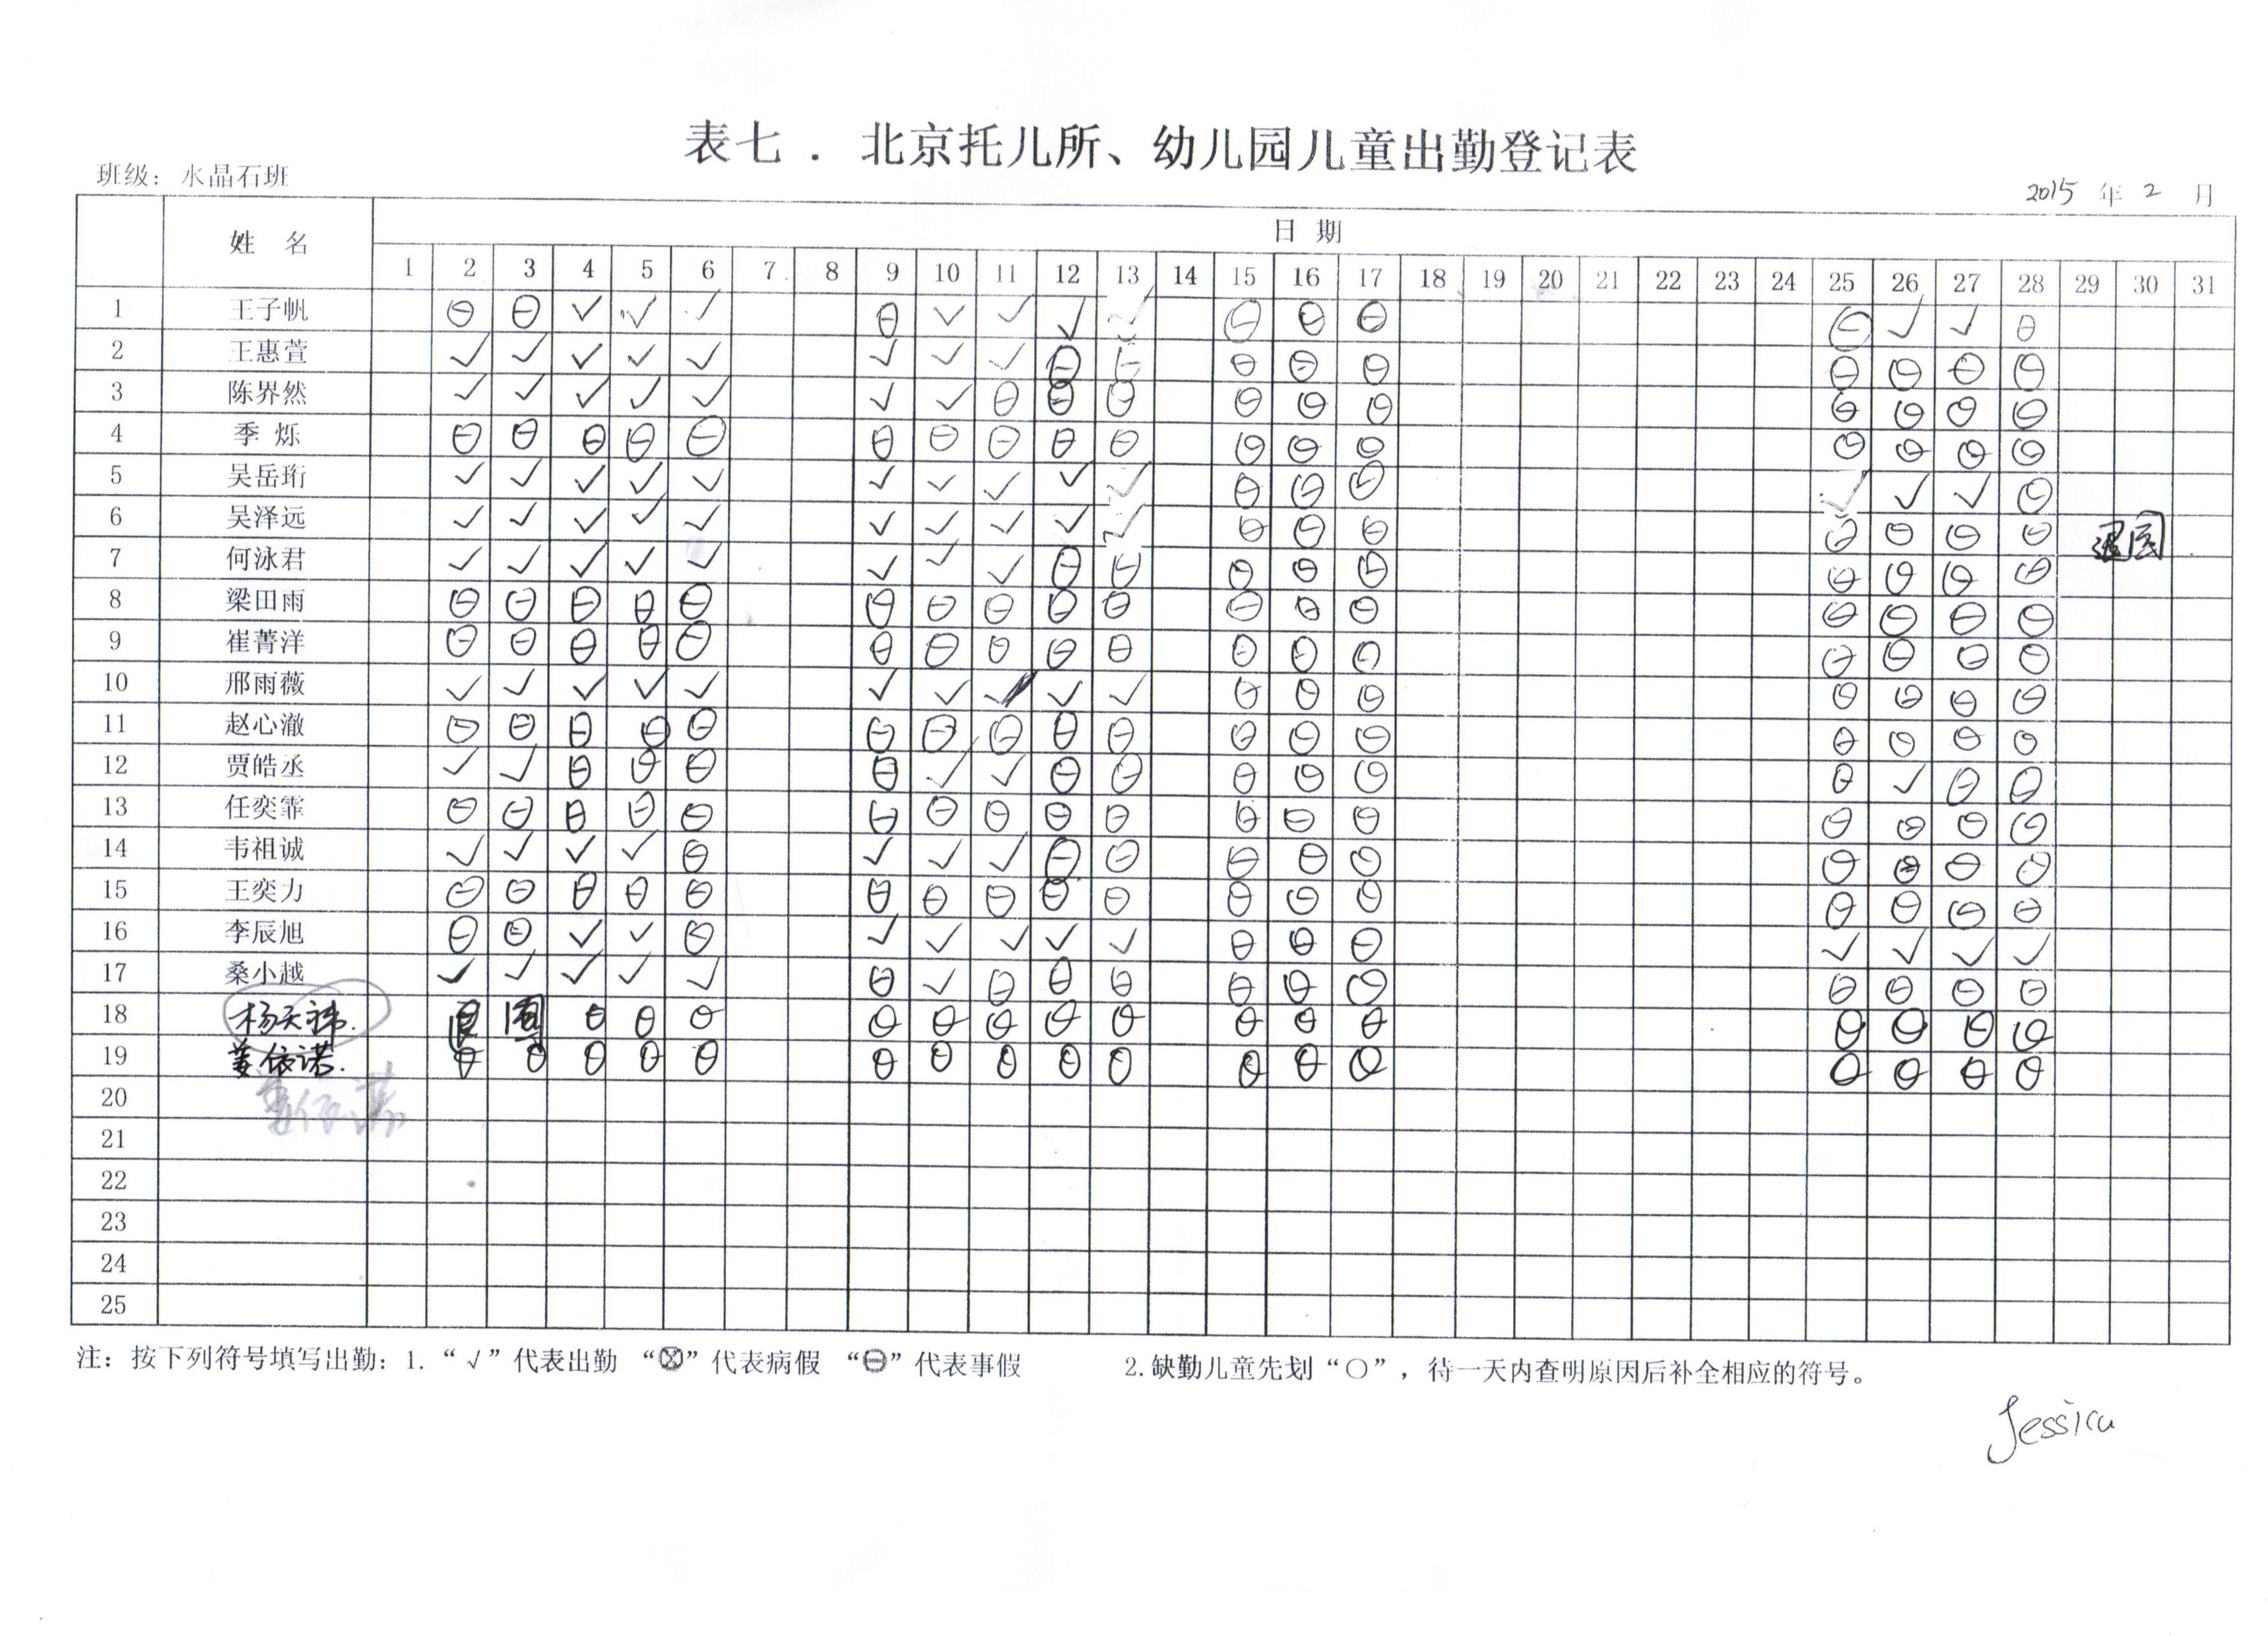 表七 . 北京托儿所、幼儿园儿童出勤登记表
班级: 水晶石班
2015 年 2 月
姓 名 日 期
1 2 3 4 5 6 7 8 9 10 11 12 13 14 15 16 17 18 19 20 21 22 23 24 25 26 27 28 29 30 31
1 王子帆 ⊖ ⊖ √ √ √ ⊖ √ √ √ √ ⊖ ⊖ ⊖ ⊖ √ √ ⊖
2 王惠萱 √ √ √ √ √ √ √ √ ⊖ ⊖ ⊖ ⊖ ⊖ ⊖ ⊖ ⊖ ⊖
3 陈界然 √ √ √ √ √ √ √ ⊖ ⊖ ⊖ ⊖ ⊖ ⊖ ⊖ ⊖ ⊖ ⊖
4 季 烁 ⊖ ⊖ ⊖ ⊖ ⊖ ⊖ ⊖ ⊖ ⊖ ⊖ ⊖ ⊖ ⊖ ⊖ ⊖ ⊖ ⊖
5 吴岳珩 √ √ √ √ √ √ √ √ √ √ ⊖ ⊖ ⊖ √ √ √ ⊖
6 吴泽远 √ √ √ √ √ √ √ √ √ √ ⊖ ⊖ ⊖ ⊖ ⊖ ⊖ ⊖ 退园
7 何泳君 √ √ √ √ √ √ √ √ ⊖ ⊖ ⊖ ⊖ ⊖ ⊖ ⊖ ⊖ ⊖
8 梁田雨 ⊖ ⊖ ⊖ ⊖ ⊖ ⊖ ⊖ ⊖ ⊖ ⊖ ⊖ ⊖ ⊖ ⊖ ⊖ ⊖ ⊖
9 崔菁洋 ⊖ ⊖ ⊖ ⊖ ⊖ ⊖ ⊖ ⊖ ⊖ ⊖ ⊖ ⊖ ⊖ ⊖ ⊖ ⊖ ⊖
10 邢雨薇 √ √ √ √ √ √ √ √ √ √ ⊖ ⊖ ⊖ ⊖ ⊖ ⊖ ⊖
11 赵心澈 ⊖ ⊖ ⊖ ⊖ ⊖ ⊖ ⊖ ⊖ ⊖ ⊖ ⊖ ⊖ ⊖ ⊖ ⊖ ⊖ ⊖
12 贾皓丞 √ √ ⊖ ⊖ ⊖ ⊖ √ √ ⊖ ⊖ ⊖ ⊖ ⊖ ⊖ √ ⊖ ⊖
13 任奕霏 ⊖ ⊖ ⊖ ⊖ ⊖ ⊖ ⊖ ⊖ ⊖ ⊖ ⊖ ⊖ ⊖ ⊖ ⊖ ⊖ ⊖
14 韦祖诚 √ √ √ √ ⊖ √ √ √ ⊖ ⊖ ⊖ ⊖ ⊖ ⊖ ⊖ ⊖ ⊖
15 王奕力 ⊖ ⊖ ⊖ ⊖ ⊖ ⊖ ⊖ ⊖ ⊖ ⊖ ⊖ ⊖ ⊖ ⊖ ⊖ ⊖ ⊖
16 李辰旭 ⊖ ⊖ √ √ ⊖ √ √ √ √ √ ⊖ ⊖ ⊖ √ √ √ √
17 桑小越 √ √ √ √ √ ⊖ √ ⊖ ⊖ ⊖ ⊖ ⊖ ⊖ ⊖ ⊖ ⊖ ⊖
18 杨天祎. ⊖ ⊖ ⊖ ⊖ ⊖ ⊖ ⊖ ⊖ ⊖ ⊖ ⊖ ⊖ ⊖ ⊖ ⊖
19 姜依诺. ⊖ ⊖ ⊖ ⊖ ⊖ ⊖ ⊖ ⊖ ⊖ ⊖ ⊖ ⊖ ⊖ ⊖ ⊖ ⊖ ⊖
20 姜依诺
21
22
23
24
25
注: 按下列符号填写出勤: 1. “√” 代表出勤 “⊗” 代表病假 “⊖” 代表事假 2.缺勤儿童先划“○”, 待一天内查明原因后补全相应的符号。
Jessica